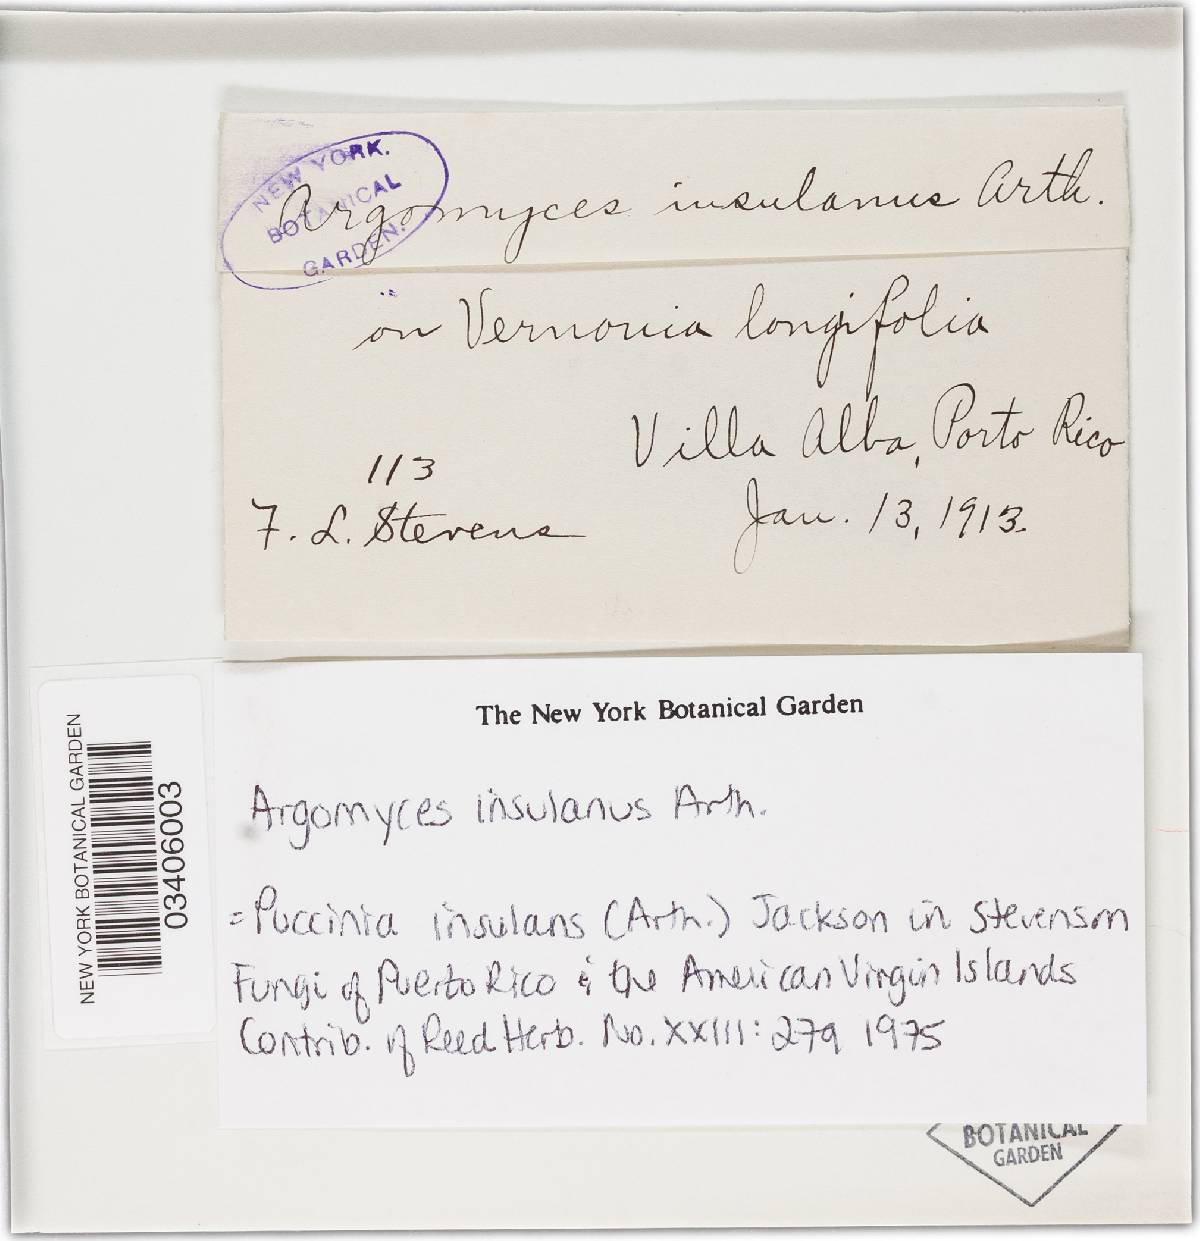 NEW YORK.
BOTANICAL
GARDEN.
Argomyces insulanus Arth.
on Vernonia longifolia
Villa Alba, Porto Rico
113
Jan. 13, 1913.
F. L. Stevens
The New York Botanical Garden
Argomyces insulanus Arth.
= Puccinia insulans (Arth.) Jackson in Stevenson
Fungi of Puerto Rico & the American Virgin Islands
Contrib. of Reed Herb. No. XXIII: 279 1975
NEW YORK BOTANICAL GARDEN
03406003
BOTANICAL
GARDEN